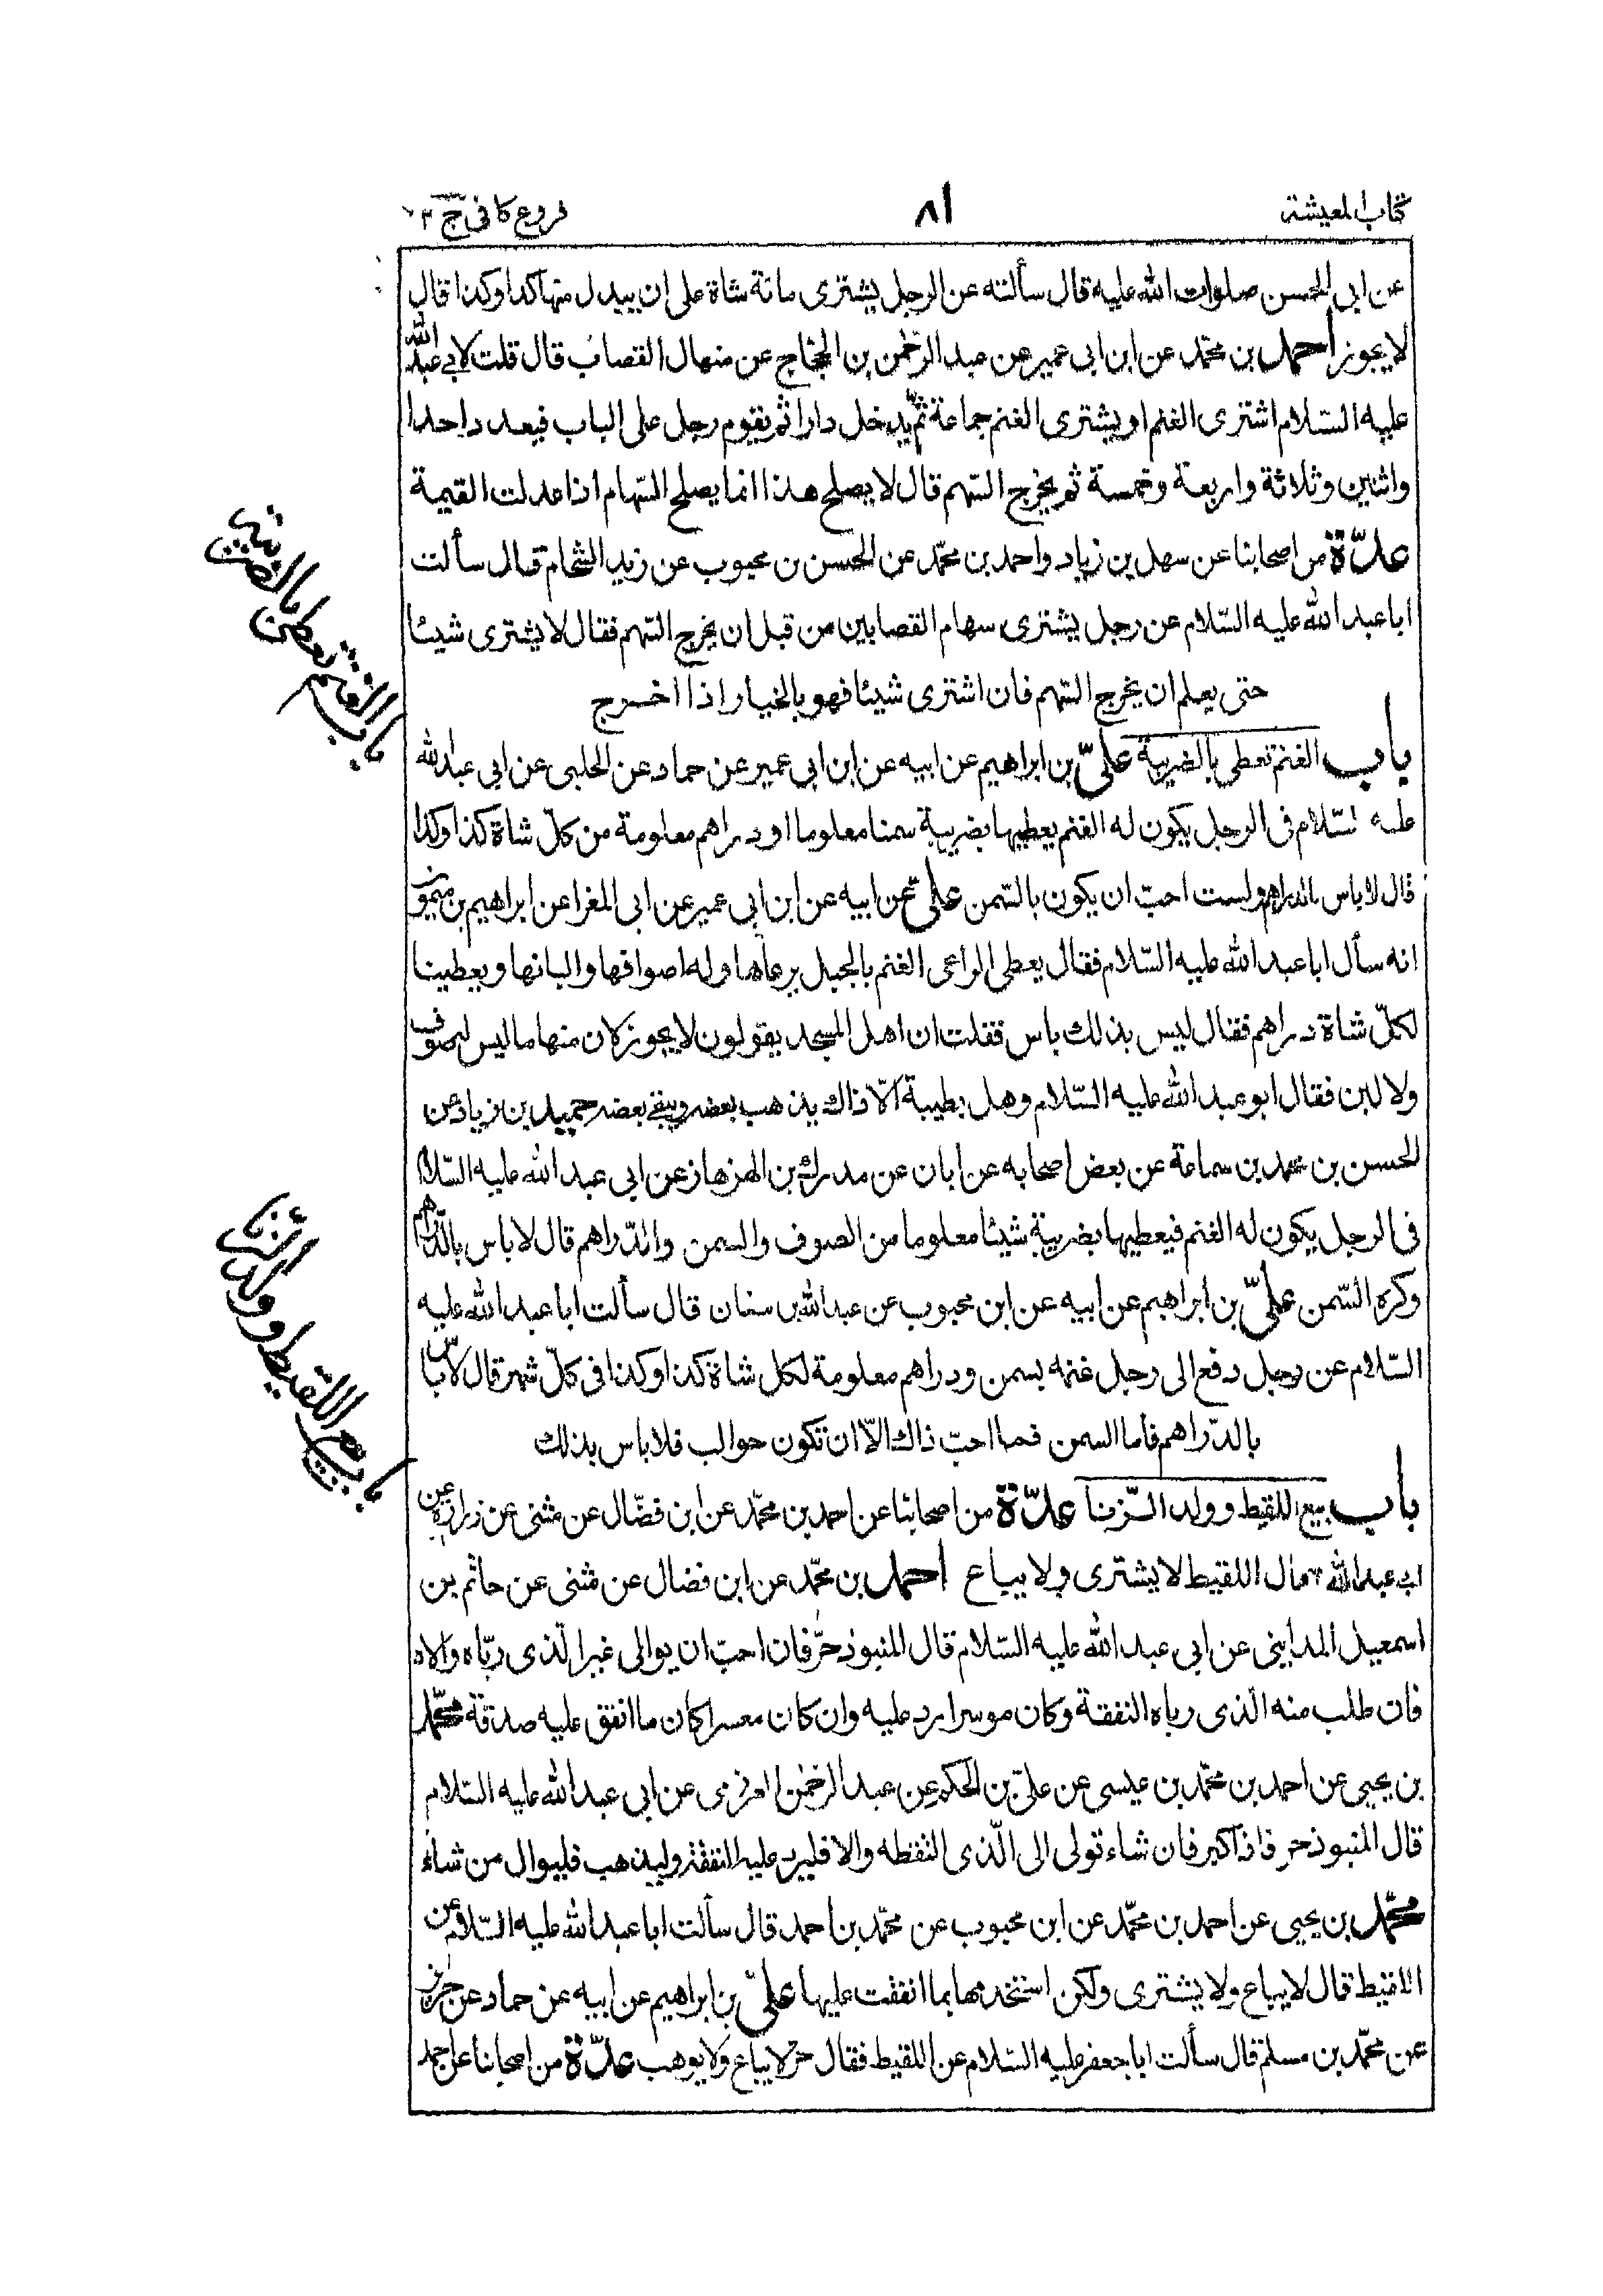 كتاب المعيشة
٨١
فروع كافى ج ٢
عن ابى الحسن صلوات الله عليه قال سألته عن الرجل يشترى مائة شاة على ان يبدل منها كذا وكذا قال
لا يجوز احمد بن محمّد عن ابن ابى عمير عن عبد الرحمٰن بن الحجّاج عن منهال القصاب قال قلت لابى عبد الله
عليه السّلام اشترى الغنم او يشترى الغنم جماعة ثمّ يدخل دارا ثم يقوم رجل على الباب فيعد واحدا
واثنين وثلاثة واربعة وخمسة ثم يخرج السّهم قال لا يصلح هذا انما يصلح السّهام اذا عدلت القيمة
عدّة من اصحابنا عن سهل بن زياد واحمد بن محمّد عن الحسن بن محبوب عن زيد الشحام قال سألت
ابا عبد الله عليه السّلام عن رجل يشترى سهام القصابين من قبل ان يخرج السّهم فقال لا يشترى شيئا
حتى يعلم ان يخرج السّهم فان اشترى شيئا فهو بالخيار اذا اخرج
باب الغنم تعطى بالضريبة
باب الغنم تعطى بالضريبة علىّ بن ابراهيم عن ابيه عن ابن ابى عمير عن حماد عن الحلبى عن ابى عبد الله
عليه السّلام فى الرجل يكون له الغنم يعطيها بضريبة سمنا معلوما او دراهم معلومة من كلّ شاة كذا وكذا
قال لا باس بالدراهم ولست احبّ ان يكون بالسّمن علىّ عن ابيه عن ابن ابى عمير عن ابى المغرا عن ابراهيم بن ميمون
انه سأل ابا عبد الله عليه السّلام فقال يعطى الراعى الغنم بالجبل يرعاها وله اصوافها والبانها ويعطينا
لكلّ شاة دراهم فقال ليس بذلك باس فقلت ان اهل المسجد يقولون لا يجوز كان منها ما ليس له صوف
ولا لبن فقال ابو عبد الله عليه السّلام وهل يطيبة الّا ذاك يذهب بعضه ويبقى بعضه حميد بن زياد عن
الحسن بن محمد بن سماعة عن بعض اصحابه عن ابان عن مدرك بن الهزهاز عن ابى عبد الله عليه السّلام
فى الرجل يكون له الغنم فيعطيها بضريبة شيئا معلوما من الصوف والسمن والدّراهم قال لا باس بالدّراهم
وكره السّمن علىّ بن ابراهيم عن ابيه عن ابن محبوب عن عبد الله بن سنان قال سألت ابا عبد الله عليه
السّلام عن رجل دفع الى رجل غنمه بسمن ودراهم معلومة لكل شاة كذا وكذا فى كلّ شهر قال لا باس
بالدّراهم فاما السمن فما احبّ ذاك الّا ان تكون حوالب فلا باس بذلك
باب بيع اللقيط وولد الزنا
باب بيع اللقيط وولد الزّنا عدّة من اصحابنا عن احمد بن محمّد عن ابن فضّال عن مثنى عن زرارة عن
ابى عبد الله ع قال اللقيط لا يشترى ولا يباع احمد بن محمّد عن ابن فضال عن مثنى عن حاتم بن
اسمعيل المداينى عن ابى عبد الله عليه السّلام قال المنبوذ حرّ فان احبّ ان يوالى غير الّذى ربّاه والاه
فان طلب منه الّذى رباه النفقة وكان موسرا رد عليه وان كان معسرا كان ما انفق عليه صدقة محمّد
بن يحيى عن احمد بن محمّد بن عيسى عن علىّ بن الحكم عن عبد الرحمٰن العرزمى عن ابى عبد الله عليه السّلام
قال المنبوذ حر فاذا كبر فان شاء تولى الى الّذى التقطه والا فليرد عليه النفقة وليذهب فليوال من شاء
محمّد بن يحيى عن احمد بن محمّد عن ابن محبوب عن محمّد بن احمد قال سألت ابا عبد الله عليه السّلام عن
اللقيط قال لا يباع ولا يشترى ولكن استخدمها بما انفقت عليها علىّ بن ابراهيم عن ابيه عن حماد عن حريز
عن محمّد بن مسلم قال سألت ابا جعفر عليه السّلام عن اللقيط فقال حرّ لا يباع ولا يوهب عدّة من اصحابنا عن احمد